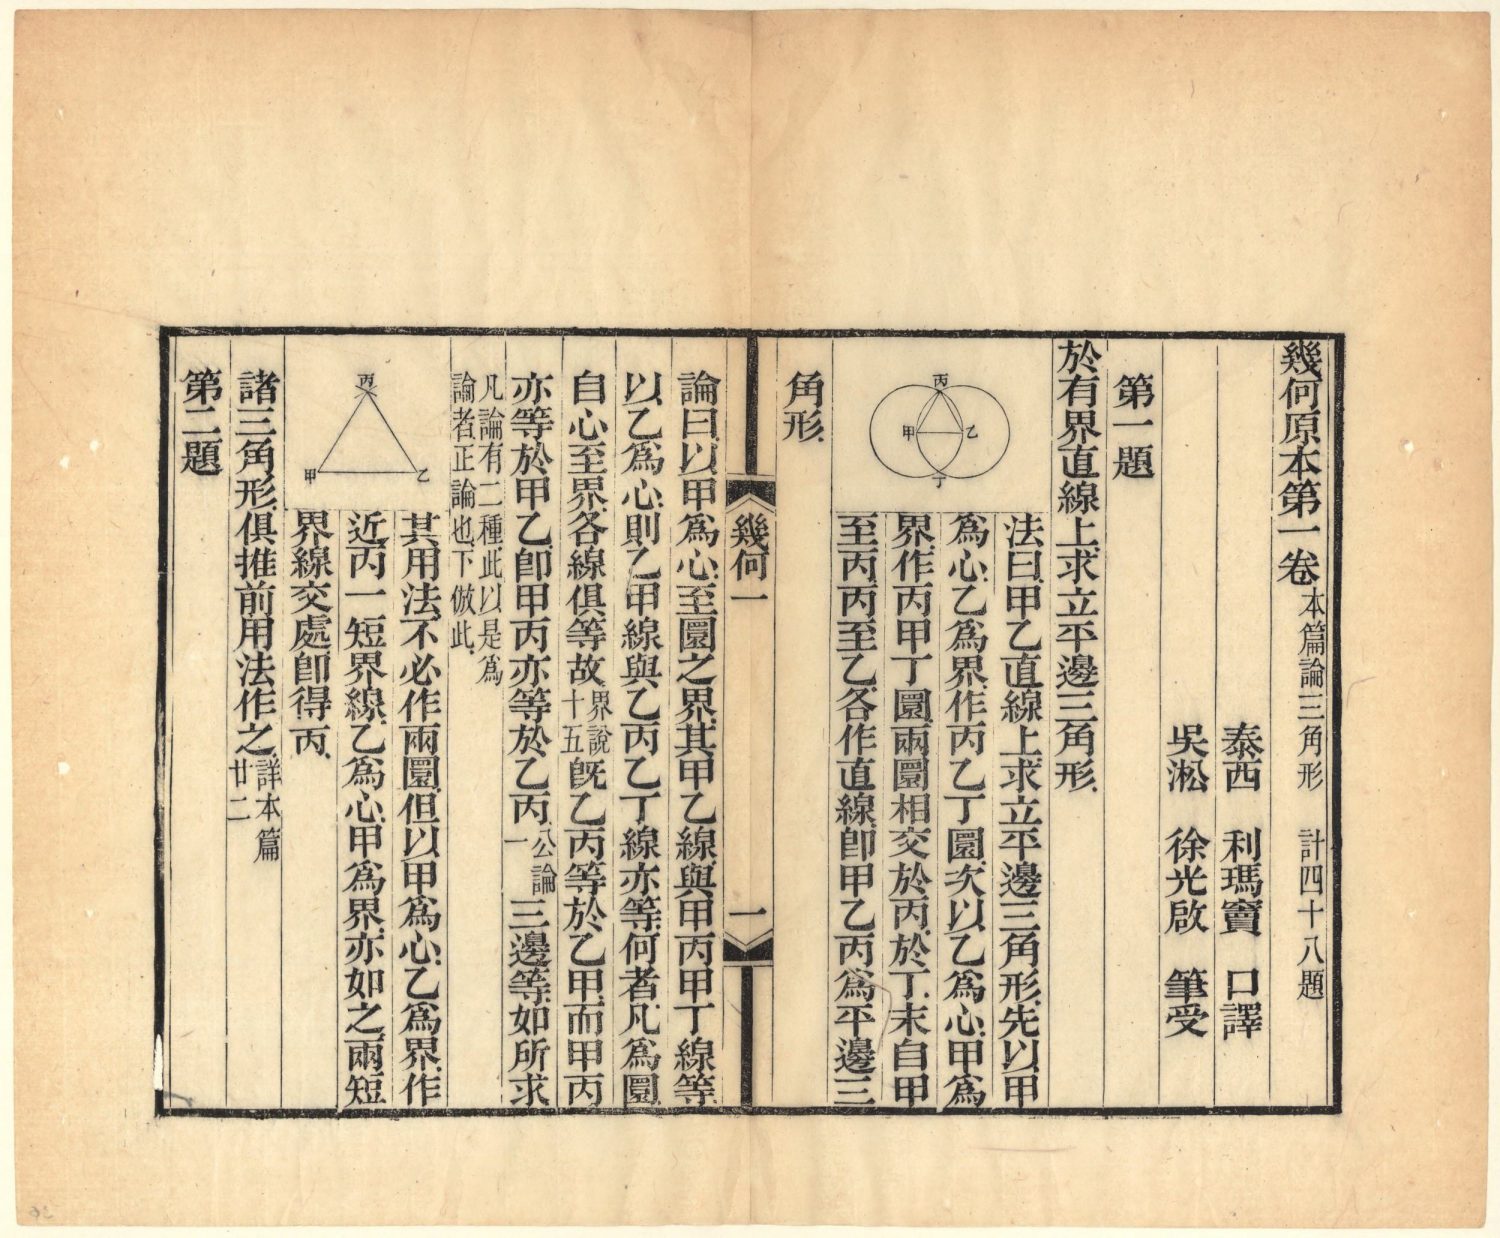 幾何原本第一卷本篇論三角形　計四十八題
泰西　利瑪竇　口譯
吳淞　徐光啟　筆受
第一題
於有界直線上求立平邊三角形
法曰甲乙直線上求立平邊三角形先以甲
為心乙為界作丙乙丁圜次以乙為心甲為
界作丙甲丁圜兩圜相交於丙於丁末自甲
至丙丙至乙各作直線即甲乙丙為平邊三
丙
甲
乙
丁
角形
幾何一
一
論曰以甲為心至圜之界其甲乙線與甲丙甲丁線等
以乙為心則乙甲線與乙丙乙丁線亦等何者凡為圜
自心至界各線俱等故界說十五既乙丙等於乙甲而甲丙
亦等於甲乙即甲丙亦等於乙丙公論一三邊等如所求
凡論有二種此以是為
論者正論也下倣此
其用法不必作兩圜但以甲為心乙為界作
近丙一短界線乙為心甲為界亦如之兩短
界線交處即得丙
丙
甲
乙
諸三角形俱推前用法作之詳本篇廿二
第二題